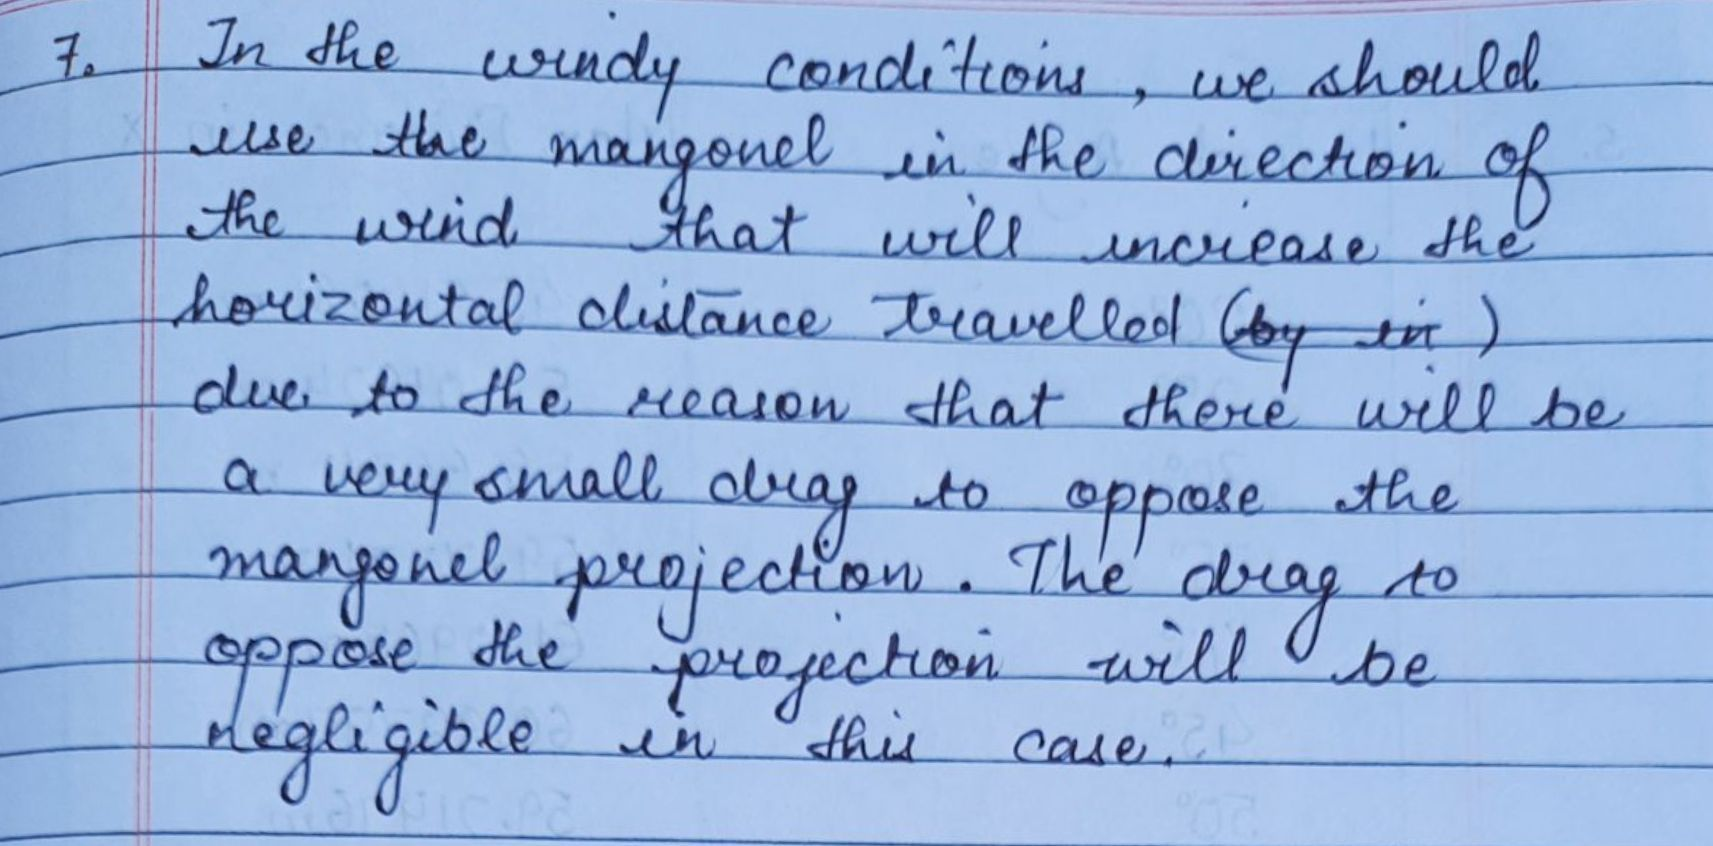 7. In the windy conditions, we should
use the mangonel in the direction of
the wind that will increase the
horizontal distance travelled (by in)
due to the reason that there will be
a very small drag to oppose the
mangonel projection. The drag to
oppose the projection will be
negligible in this case.